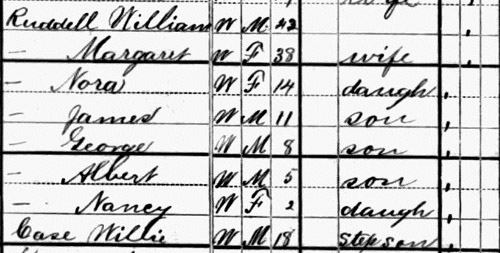 Ruddell William W M 42
— Margaret W F 38 wife
— Nora W F 14 daugh
— James W M 11 son
— George W M 8 son
— Albert W M 5 son
— Nancy W F 2 daugh
Case Willie W M 18 Stepson